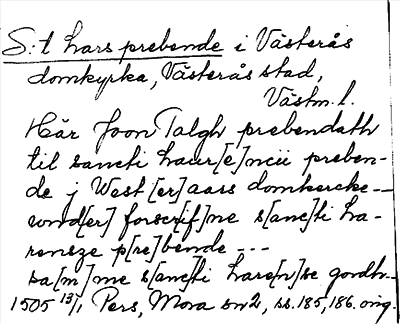 S:t Lars prebende i Västerås
domkyrka, Västerås stad,
Västm. l.
Här Joon Talgh prebendath
til sancti laur[e]ncii preben-
de j West[er]aars domkercke --
wnd[er] forscr[if]ne s[anc]ti la-
rensze p[re]bende ---
sa[m]me s[anc]ti lare[n]se gordh--
1505 13/1, Pers, Mora sn 2, ss. 185, 186. orig.